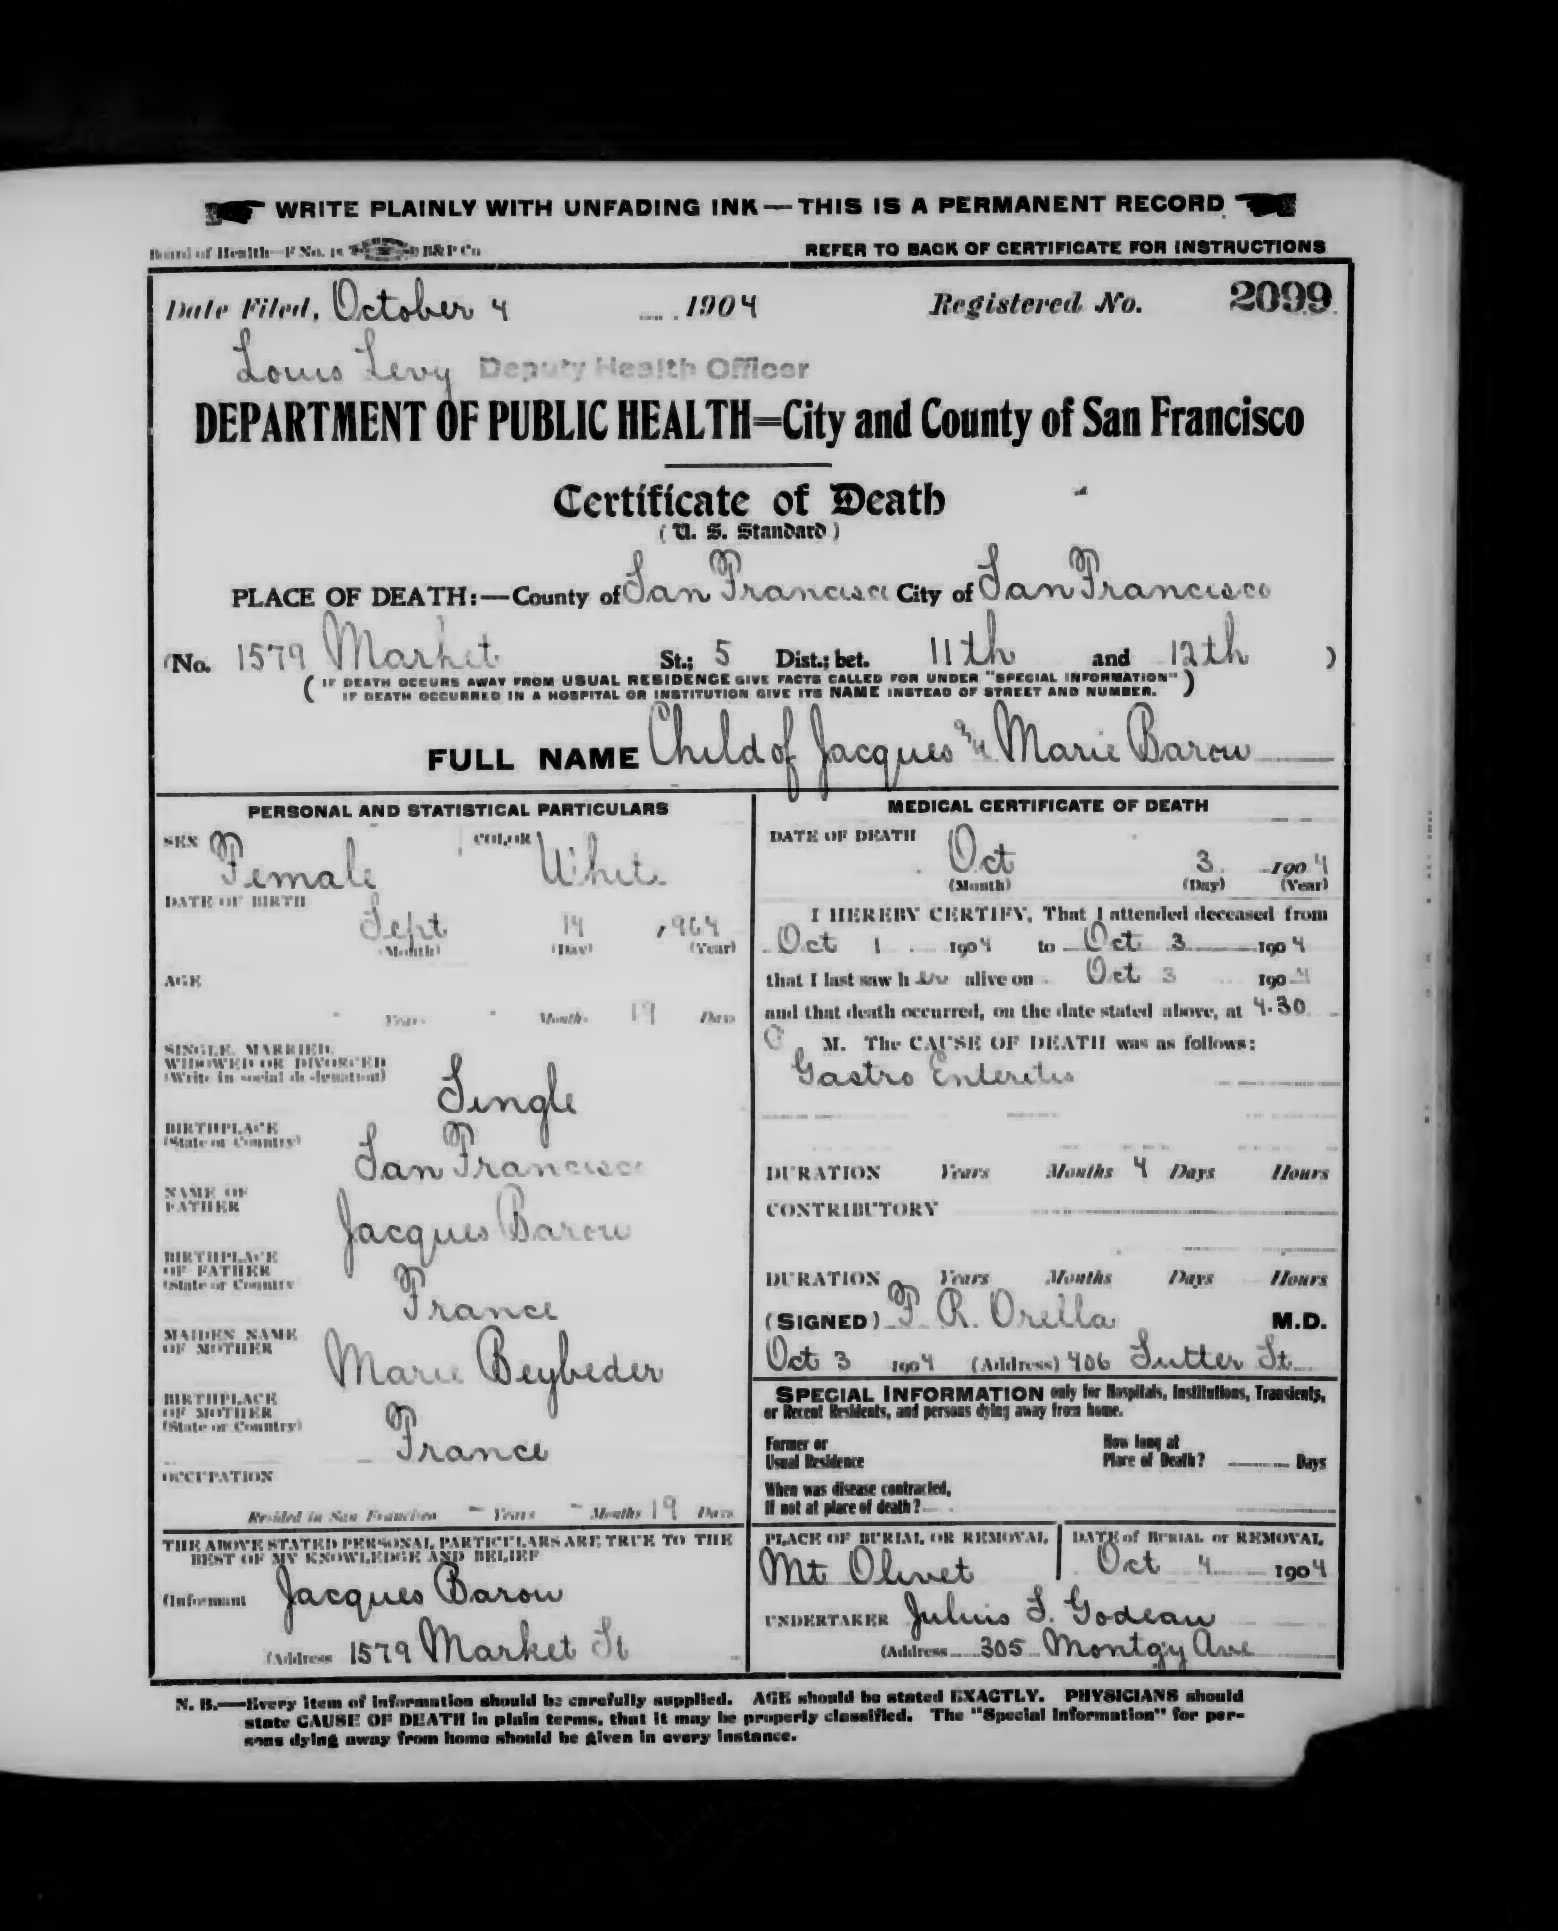 WRITE PLAINLY WITH UNFADING INK—THIS IS A PERMANENT RECORD
Board of Health—F No. 15 B&P Co
REFER TO BACK OF CERTIFICATE FOR INSTRUCTIONS
Date Filed, October 4 1904 Registered No. 2099
Louis Levy Deputy Health Officer
DEPARTMENT OF PUBLIC HEALTH=City and County of San Francisco
Certificate of Death
(U. S. Standard)
PLACE OF DEATH:—County of San Francisco City of San Francisco
(No. 1579 Market St.; 5 Dist.; bet. 11th and 12th )
( IF DEATH OCCURS AWAY FROM USUAL RESIDENCE GIVE FACTS CALLED FOR UNDER "SPECIAL INFORMATION" )
IF DEATH OCCURRED IN A HOSPITAL OR INSTITUTION GIVE ITS NAME INSTEAD OF STREET AND NUMBER.
FULL NAME Child of Jacques and Marie Barou
PERSONAL AND STATISTICAL PARTICULARS
SEX Female COLOR White
DATE OF BIRTH
Sept 14 1904
(Month) (Day) (Year)
AGE
- Years - Months 19 Days
SINGLE, MARRIED,
WIDOWED OR DIVORCED
(Write in social designation)
Single
BIRTHPLACE
(State or Country)
San Francisco
NAME OF
FATHER
Jacques Barou
BIRTHPLACE
OF FATHER
(State or Country
France
MAIDEN NAME
OF MOTHER
Marie Beybeder
BIRTHPLACE
OF MOTHER
(State or Country)
France
OCCUPATION
Resided in San Francisco - Years - Months 19 Days
THE ABOVE STATED PERSONAL PARTICULARS ARE TRUE TO THE
BEST OF MY KNOWLEDGE AND BELIEF
(Informant Jacques Barou
(Address 1579 Market St
MEDICAL CERTIFICATE OF DEATH
DATE OF DEATH
Oct 3 1904
(Month) (Day) (Year)
I HEREBY CERTIFY, That I attended deceased from
Oct 1 1904 to Oct 3 1904
that I last saw h er alive on Oct 3 1904
and that death occurred, on the date stated above, at 4.30
M. The CAUSE OF DEATH was as follows:
Gastro Enteritis
DURATION Years Months 4 Days Hours
CONTRIBUTORY
DURATION Years Months Days Hours
(SIGNED) F. R. Orella M.D.
Oct 3 1904 (Address) 406 Sutter St
SPECIAL INFORMATION only for Hospitals, Institutions, Transients,
or Recent Residents, and persons dying away from home.
Former or
Usual Residence
How long at
Place of Death? Days
When was disease contracted,
If not at place of death?
PLACE OF BURIAL OR REMOVAL
Mt Olivet
DATE of BURIAL or REMOVAL
Oct 4 1904
UNDERTAKER Julius S. Godeau
(Address 305 Montgy Ave
N. B.—Every item of information should be carefully supplied. AGE should be stated EXACTLY. PHYSICIANS should
state CAUSE OF DEATH in plain terms, that it may be properly classified. The "Special Information" for per-
sons dying away from home should be given in every instance.